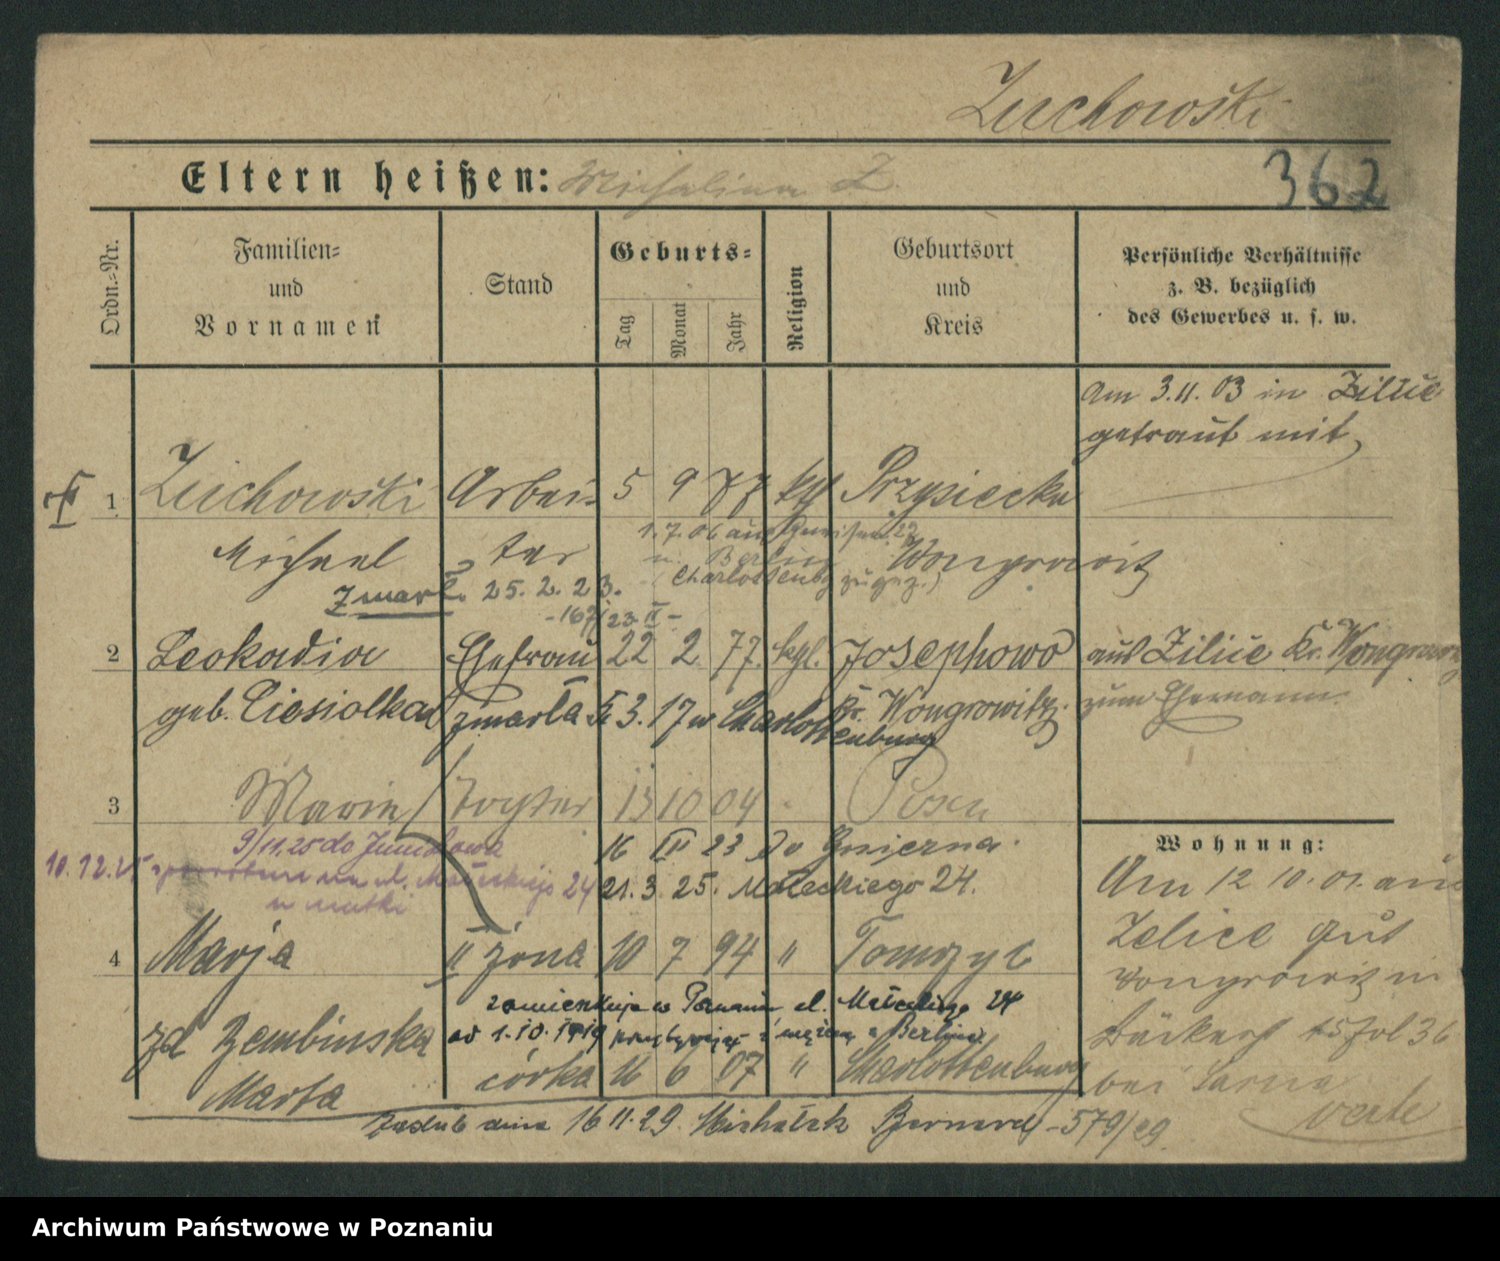 Zuchowski
Eltern heißen: Michalina Z.
362
Ordn.-Nr.
Familien-
und
Vornamen
Stand
Geburts-
Tag
Monat
Jahr
Religion
Geburtsort
und
Kreis
Persönliche Verhältnisse
z. B. bezüglich
des Gewerbes u. s. w.
am 3.11.03 in Zilice
getraut mit
1 Zuchowski Arbei- 5 9 77 kgl Przysiecka
Michael ter Wongrowitz
1.7.06 aus
n. Berlin
(Charlottenbg zugez.)
Zmarł 25.2.23.
-167/23 II-
2 Leokadia Ehefrau 22 2 77. kgl. Josephowo aus Zilice Kr. Wongrowitz
geb. Ciesiolka zmarła 3. 17 w Charlottenburg Kr. Wongrowitz. zum Ehemann
3 Marie Tochter 13 10 04 Posen
9/11.25 do Junikowa
16 III 23 do Gniezna
10.12.25 ul. Małeckiego 24
u matki
21. 3. 25. Małeckiego 24.
4 Marja II żona 10 7 94 " Tomczyc
zamieszkuje w Poznaniu ul. Małeckiego 24
zd Zembinska od 1.10.1919 z mężem z Berlina
Marta córka 16 6 07 " Charlottenburg
zaślub dnia 16 11.29. Michalak Bernard -579/29
Wohnung:
Am 12 10.01. aus
Zelice Gut
Wongrowitz in
36
bei Sarna
verte